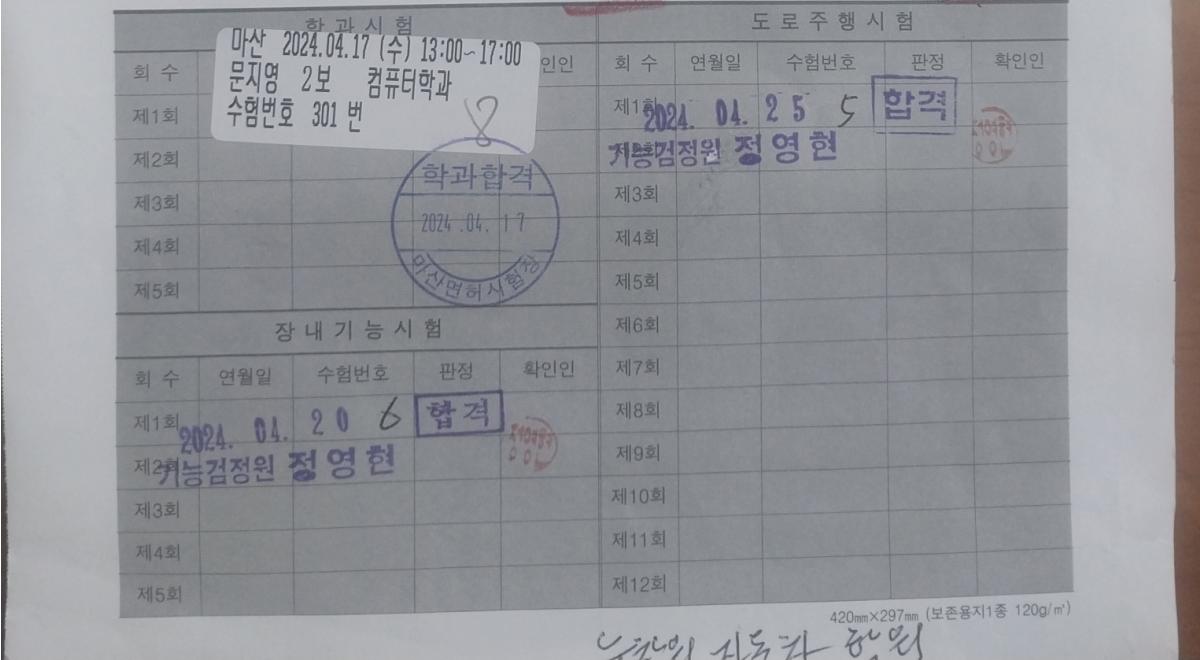 학 과 시 험
마산 2024.04.17 (수) 13:00~17:00
문지영 2보 컴퓨터학과
수험번호 301 번
8
회 수 인인
제1회
제2회
제3회
제4회
제5회
학과합격
2024.04.17
마산면허시험장
장 내 기 능 시 험
회 수 연월일 수험번호 판정 확인인
제1회 2024. 04. 20 6 합격
제2회 기능검정원 정영현
제3회
제4회
제5회
도 로 주 행 시 험
회 수 연월일 수험번호 판정 확인인
제1회 2024. 04. 25 5 합격
기능검정원 정영현
제3회
제4회
제5회
제6회
제7회
제8회
제9회
제10회
제11회
제12회
420㎜×297㎜ (보존용지1종 120g/㎡)
자동차 학원